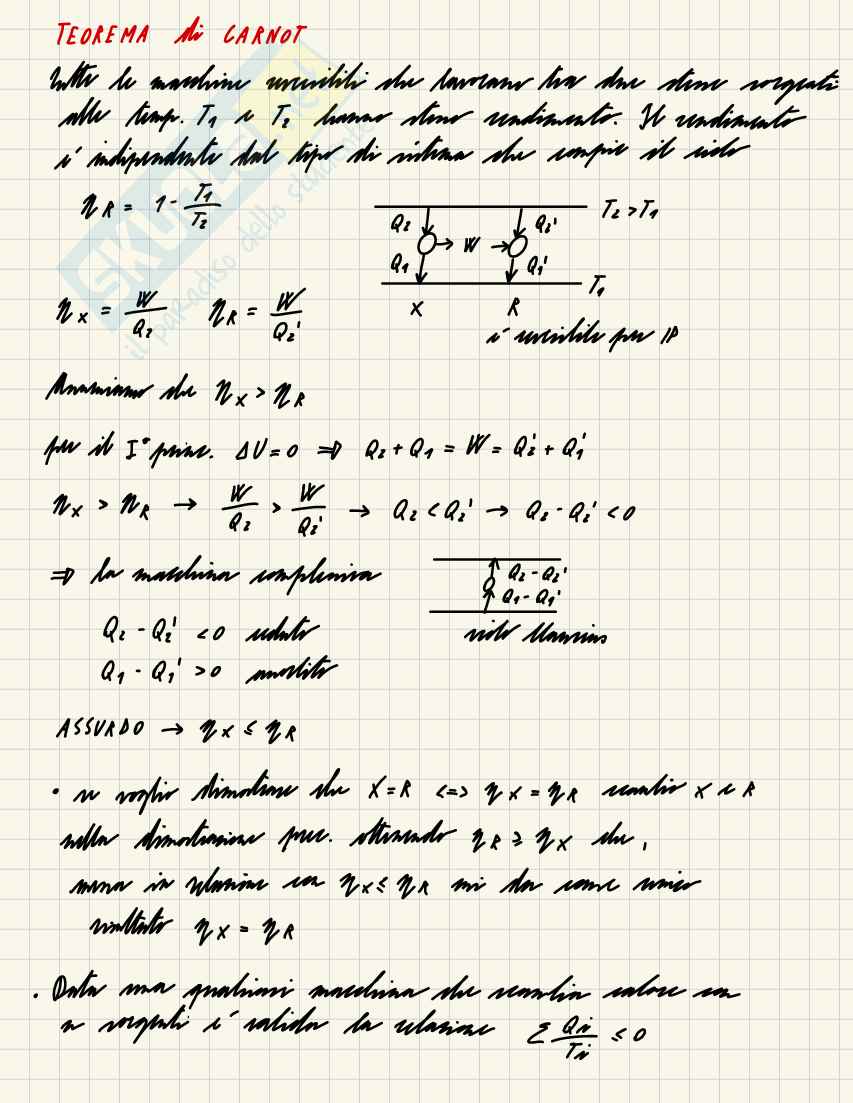 TEOREMA di CARNOT
Tutte le macchine reversibili che lavorano tra due stesse sorgenti
alle temp. T₁ e T₂ hanno stesso rendimento. Il rendimento
è indipendente dal tipo di sistema che compie il ciclo
η_R = 1 - T₁/T₂
Q₂ Q₂' T₂ > T₁
W
Q₁ Q₁' T₁
X R
η_X = W/Q₂ η_R = W/Q₂'
è reversibile per IP
Assumiamo che η_X > η_R
per il I° princ. ΔU = 0 ⇒ Q₂ + Q₁ = W = Q₂' + Q₁'
η_X > η_R → W/Q₂ > W/Q₂' → Q₂ < Q₂' → Q₂ - Q₂' < 0
⇒ la macchina complessiva
Q₂ - Q₂'
Q₁ - Q₁'
Q₂ - Q₂' < 0 ceduto
ciclo Clausius
Q₁ - Q₁' > 0 assorbito
ASSURDO → η_X ≤ η_R
• se voglio dimostrare che X = R <=> η_X = η_R scambio X e R
nella dimostrazione prec. ottenendo η_R ≥ η_X che,
messa in relazione con η_X ≤ η_R mi da come unico
risultato η_X = η_R
. Data una qualsiasi macchina che scambia calore con
n sorgenti è valida la relazione Σ Qi/Ti ≤ 0
SKUOLA.net
il paradiso dello studente